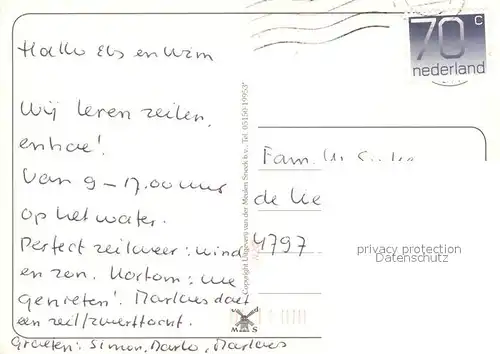 Hallo Els en Wim
Wij leren zeilen,
en hoe!
Van 9 - 17.00 uur
op het water.
Perfect zeilweer: wind
en zon. Kortom: we
genieten! Marloes doet
een zeil/zwerftocht.
Groeten: Simon, Marlo, Marloes
70 c
nederland
Copyright Uitgeverij van der Meulen Sneek b.v., Tel. 05150-19953*
Fam.
de
4797
privacy protection
Datenschutz
M S